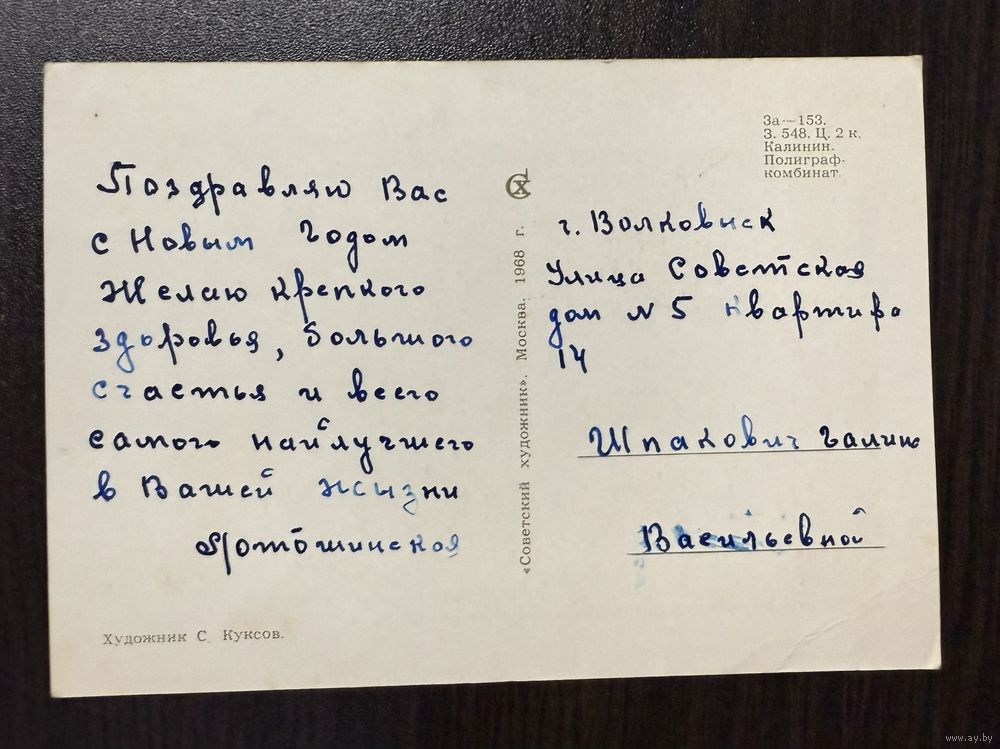 Поздравляю Вас
с Новым Годом
Желаю крепкого
здоровья, большого
счастья и всего
самого найлучшего
в Вашей жизни
Художник С. Куксов.
«Советский художник». Москва. 1968 г.
СХ
За—153.
З. 548. Ц. 2 к.
Калинин.
Полиграф-
комбинат.
г. Волковыск
Улица Советская
дом N 5 квартира
14
Шпакович Галине
Васильевной
www.ay.by